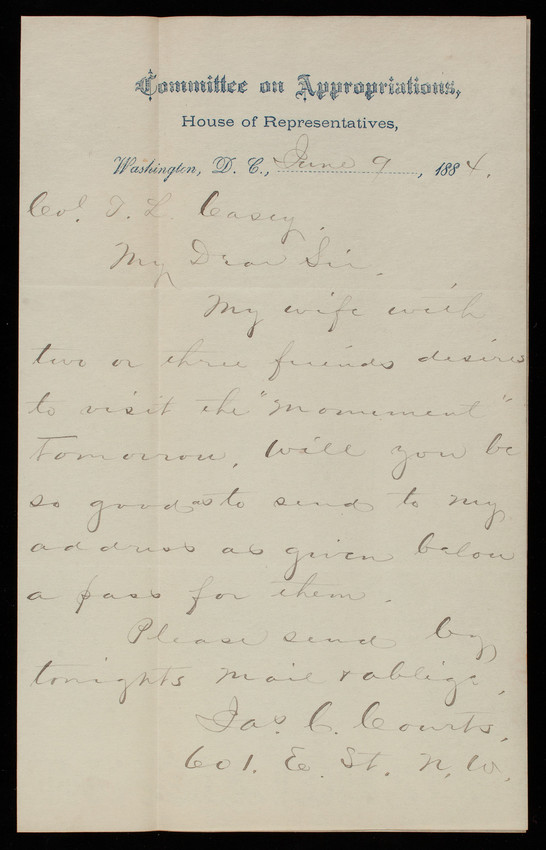 Committee on Appropriations,
House of Representatives,
Washington, D. C., June 9, 1884.
Col. T. L. Casey.
My Dear Sir.
My wife with
two or three friends desires
to visit the "Monument"
tomorrow. Will you be
so good as to send to my
address as given below
a pass for them.
Please send by
tonights mail & oblige,
Jas. C. Courts.
601. E. St. N. W.